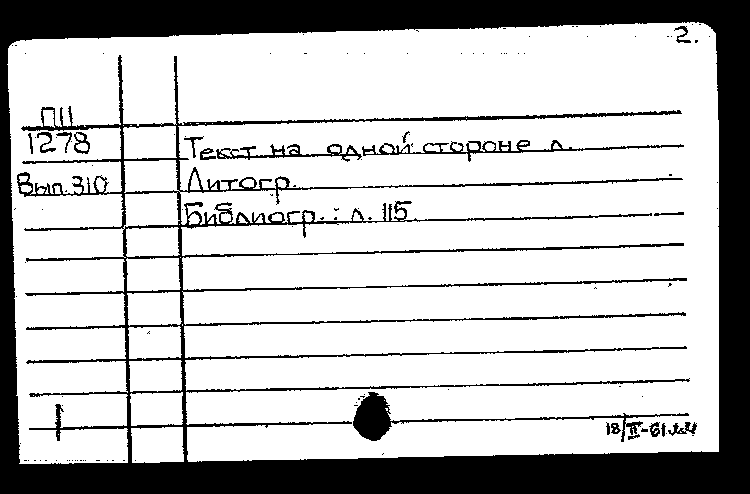 2.
П11
1278
Текст на одной стороне л.
Вып. 310
Литогр.
Библиогр.: л. 115
18/II-61